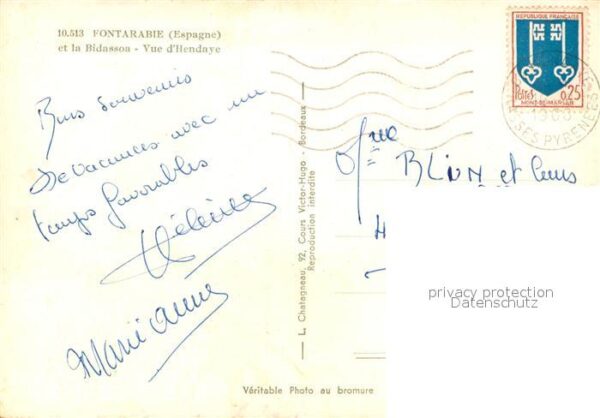 10.513 FONTARABIE (Espagne)
et la Bidassoa - Vue d'Hendaye
Bons souvenirs
de vacances avec un
temps favorable
Hélène
Marianne
L. Chatagneau, 92, Cours Victor-Hugo - Bordeaux
Reproduction interdite
Véritable Photo au bromure
REPUBLIQUE FRANÇAISE
POSTES 0,25
MONT-DE-MARSAN
SES PYRENEES
Mme
BLION et Cens
privacy protection
Datenschutz